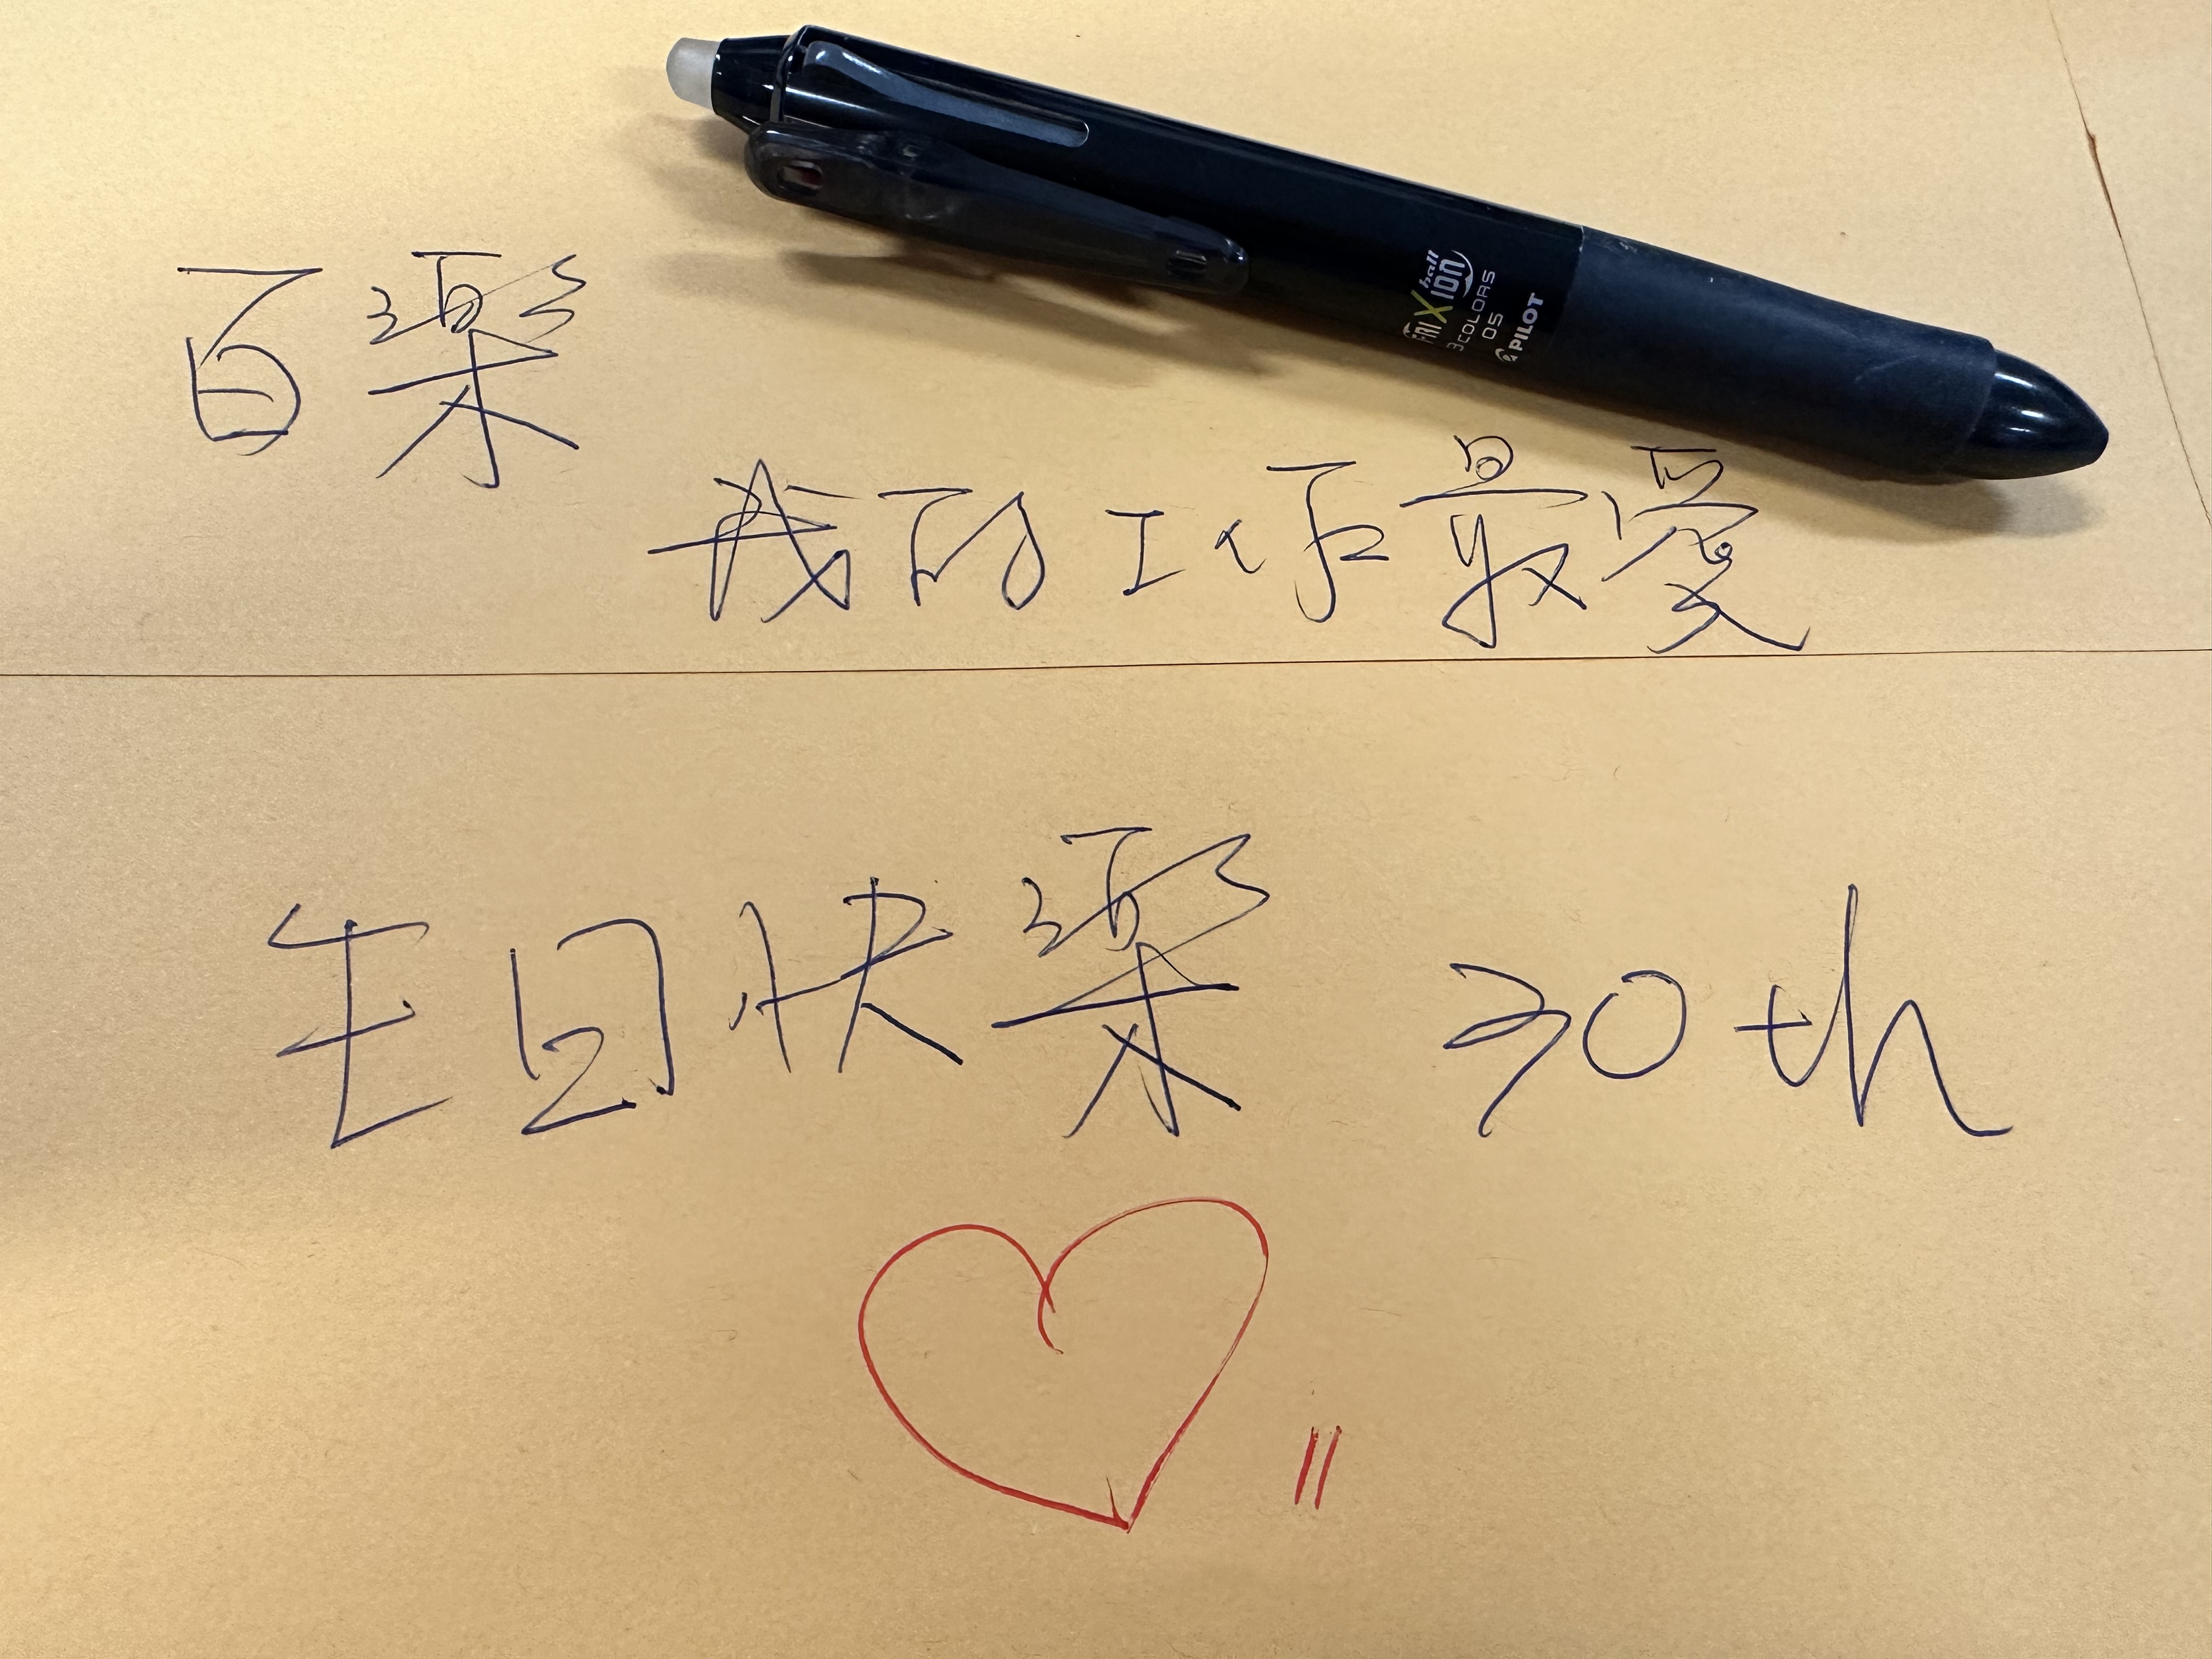 FRIXION ball
3COLORS
05
PILOT
百樂
我的工作最愛
生日快樂 30th